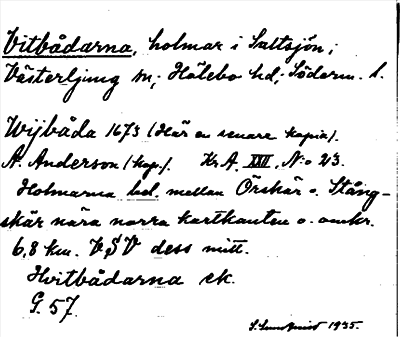 Vitbådarna, holmar i Saltsjön;
Västerljung sn; Hölebo hd; Söderm. l.
Wijbåda 1673 (Här en senare kopia).
A. Anderson (kop.). Kr A. XXII, N:o 2/3.
Holmarna bel. mellan Örskär o. Stång-
skär nära norra kartkanten o. omkr.
6,8 km. VSV dess mitt.
Hvitbådarna ek.
G. 57.
S. Lundqvist 1935.